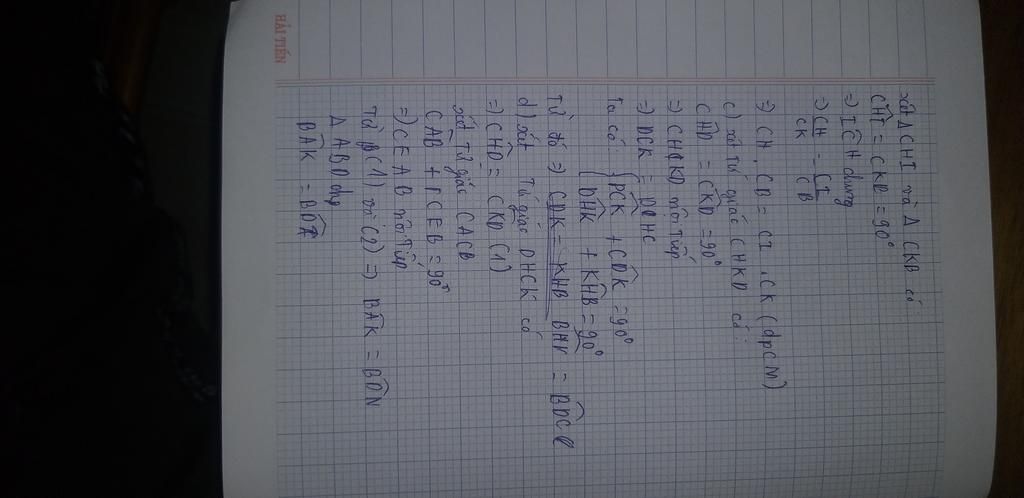 HẢI TIẾN
xét Δ CHI và Δ CKB có
CHI = CKB = 90°
=> ICH chung
=> CH/CK = CI/CB
=> CH . CB = CI . CK (dpcm)
c) xét tứ giác CHKD có:
CHD = CKD = 90°
=> CHKD nội tiếp
=> DCK = DHC
Ta có: { DCK + CDK = 90°
DHK + KHB = 90°
Từ đó => CDK = KHB BHK = BDC
d) xét tứ giác DHCK có
=> CHD = CKD (1)
xét tứ giác CACB
CAB + CEB = 90°
=> CEAB nội tiếp
Từ (1) và (2) => BAK = BDN
Δ ABD
BAK = BDI